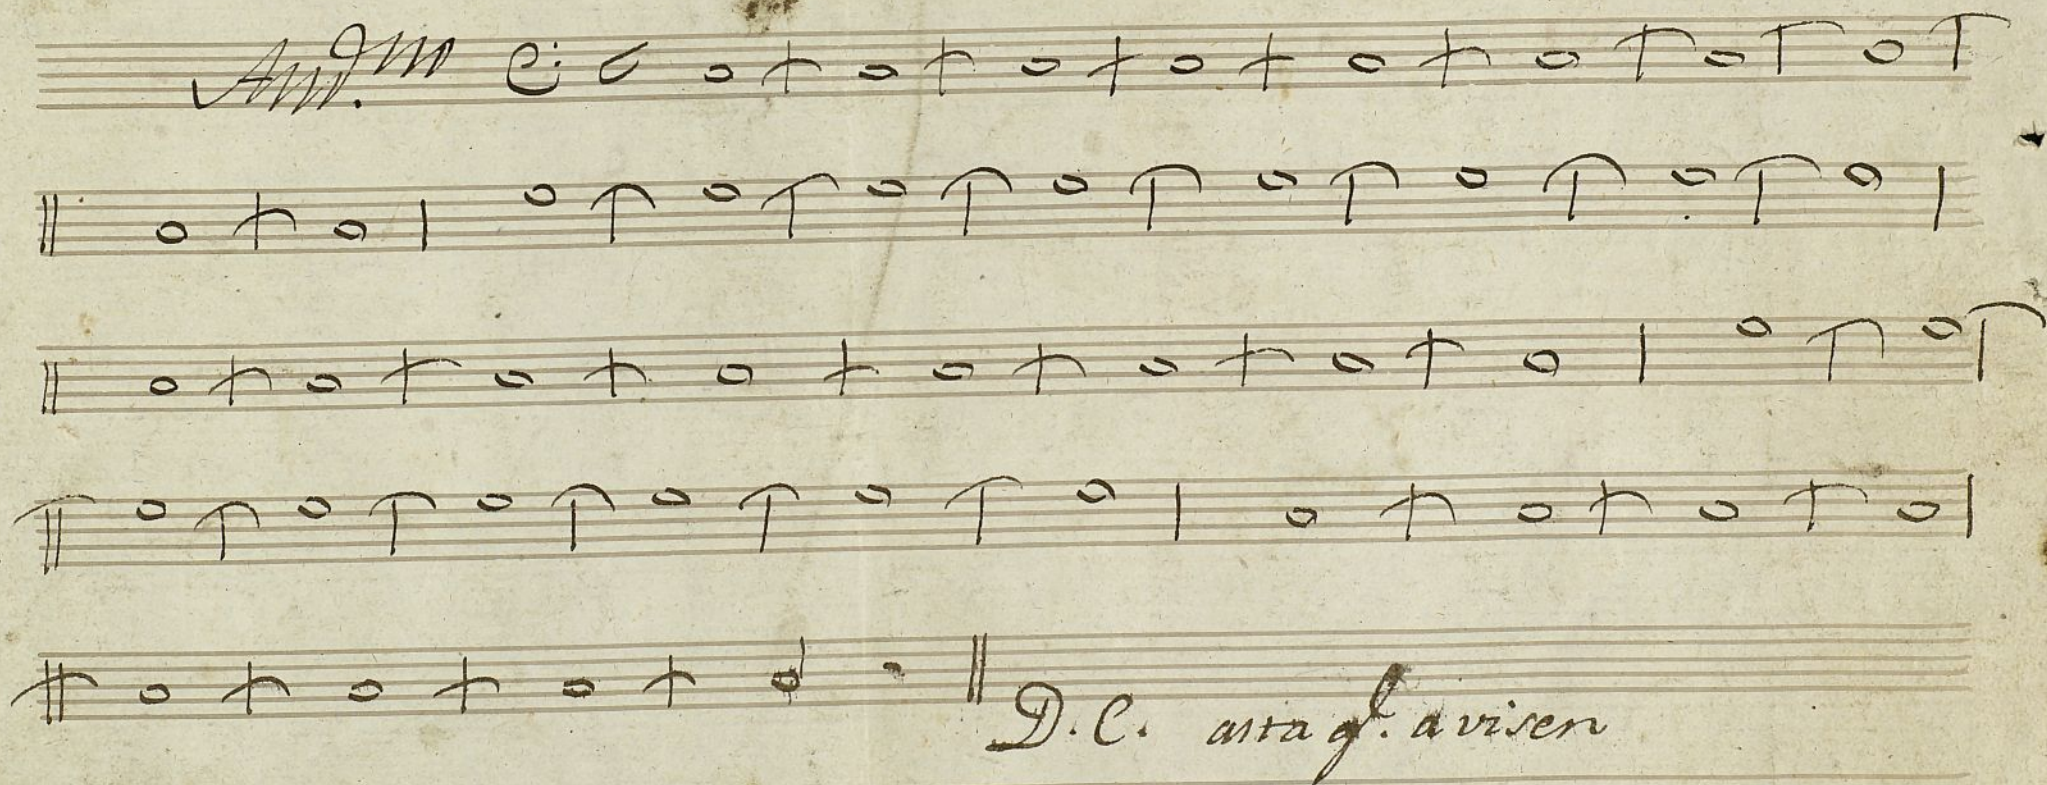 And.mo
D. C. asta q.e avisen